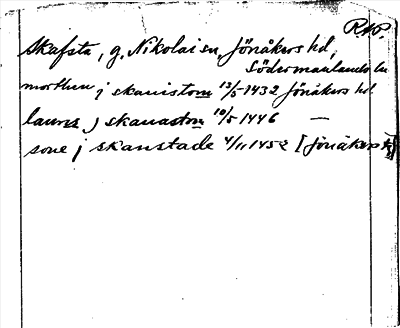 RAP.
Skafsta, g. Nikolai sn, Jönåkers hd,
Södermanlands ln
morthen j skanistom 13/5 1432 Jönåkers hd
laures j skanastom 10/5 1446 —
sone j skanstade 4/11 1452 [Jönåkers hd]